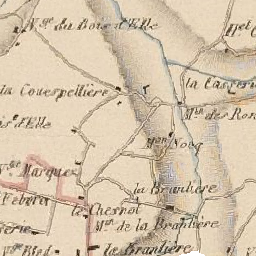 Vge. du Bois d'Elle
Hel
la Couespellière
la Casserie
Min. des Ron
is d'Elle
Mon Nocq
Vge. Marques
la Branlière
Febvre
le Chesnot
Min. de la Branlière
erie
la Branlière